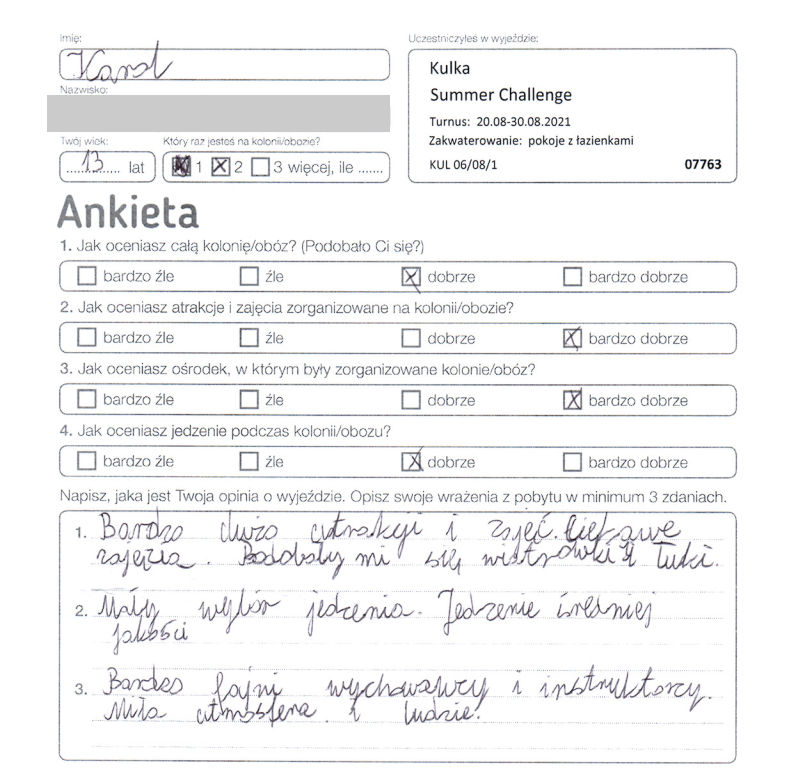 Imię:
Karol
Nazwisko:
Twój wiek:
13 lat
Który raz jesteś na kolonii/obozie?
1 2 3 więcej, ile .......
Uczestniczyłeś w wyjeździe:
Kulka
Summer Challenge
Turnus: 20.08-30.08.2021
Zakwaterowanie: pokoje z łazienkami
KUL 06/08/1 07763
Ankieta
1. Jak oceniasz całą kolonię/obóz? (Podobało Ci się?)
bardzo źle źle dobrze bardzo dobrze
2. Jak oceniasz atrakcje i zajęcia zorganizowane na kolonii/obozie?
bardzo źle źle dobrze bardzo dobrze
3. Jak oceniasz ośrodek, w którym były zorganizowane kolonie/obóz?
bardzo źle źle dobrze bardzo dobrze
4. Jak oceniasz jedzenie podczas kolonii/obozu?
bardzo źle źle dobrze bardzo dobrze
Napisz, jaka jest Twoja opinia o wyjeździe. Opisz swoje wrażenia z pobytu w minimum 3 zdaniach.
1. Bardzo dużo atrakcji i zajęć. Ciekawe
zajęcia. Podobały mi się wiatrówki i łuki.
2. Mały wybór jedzenia. Jedzenie średniej
jakości
3. Bardzo fajni wychowawcy i instruktorzy.
Miła atmosfera i ludzie.